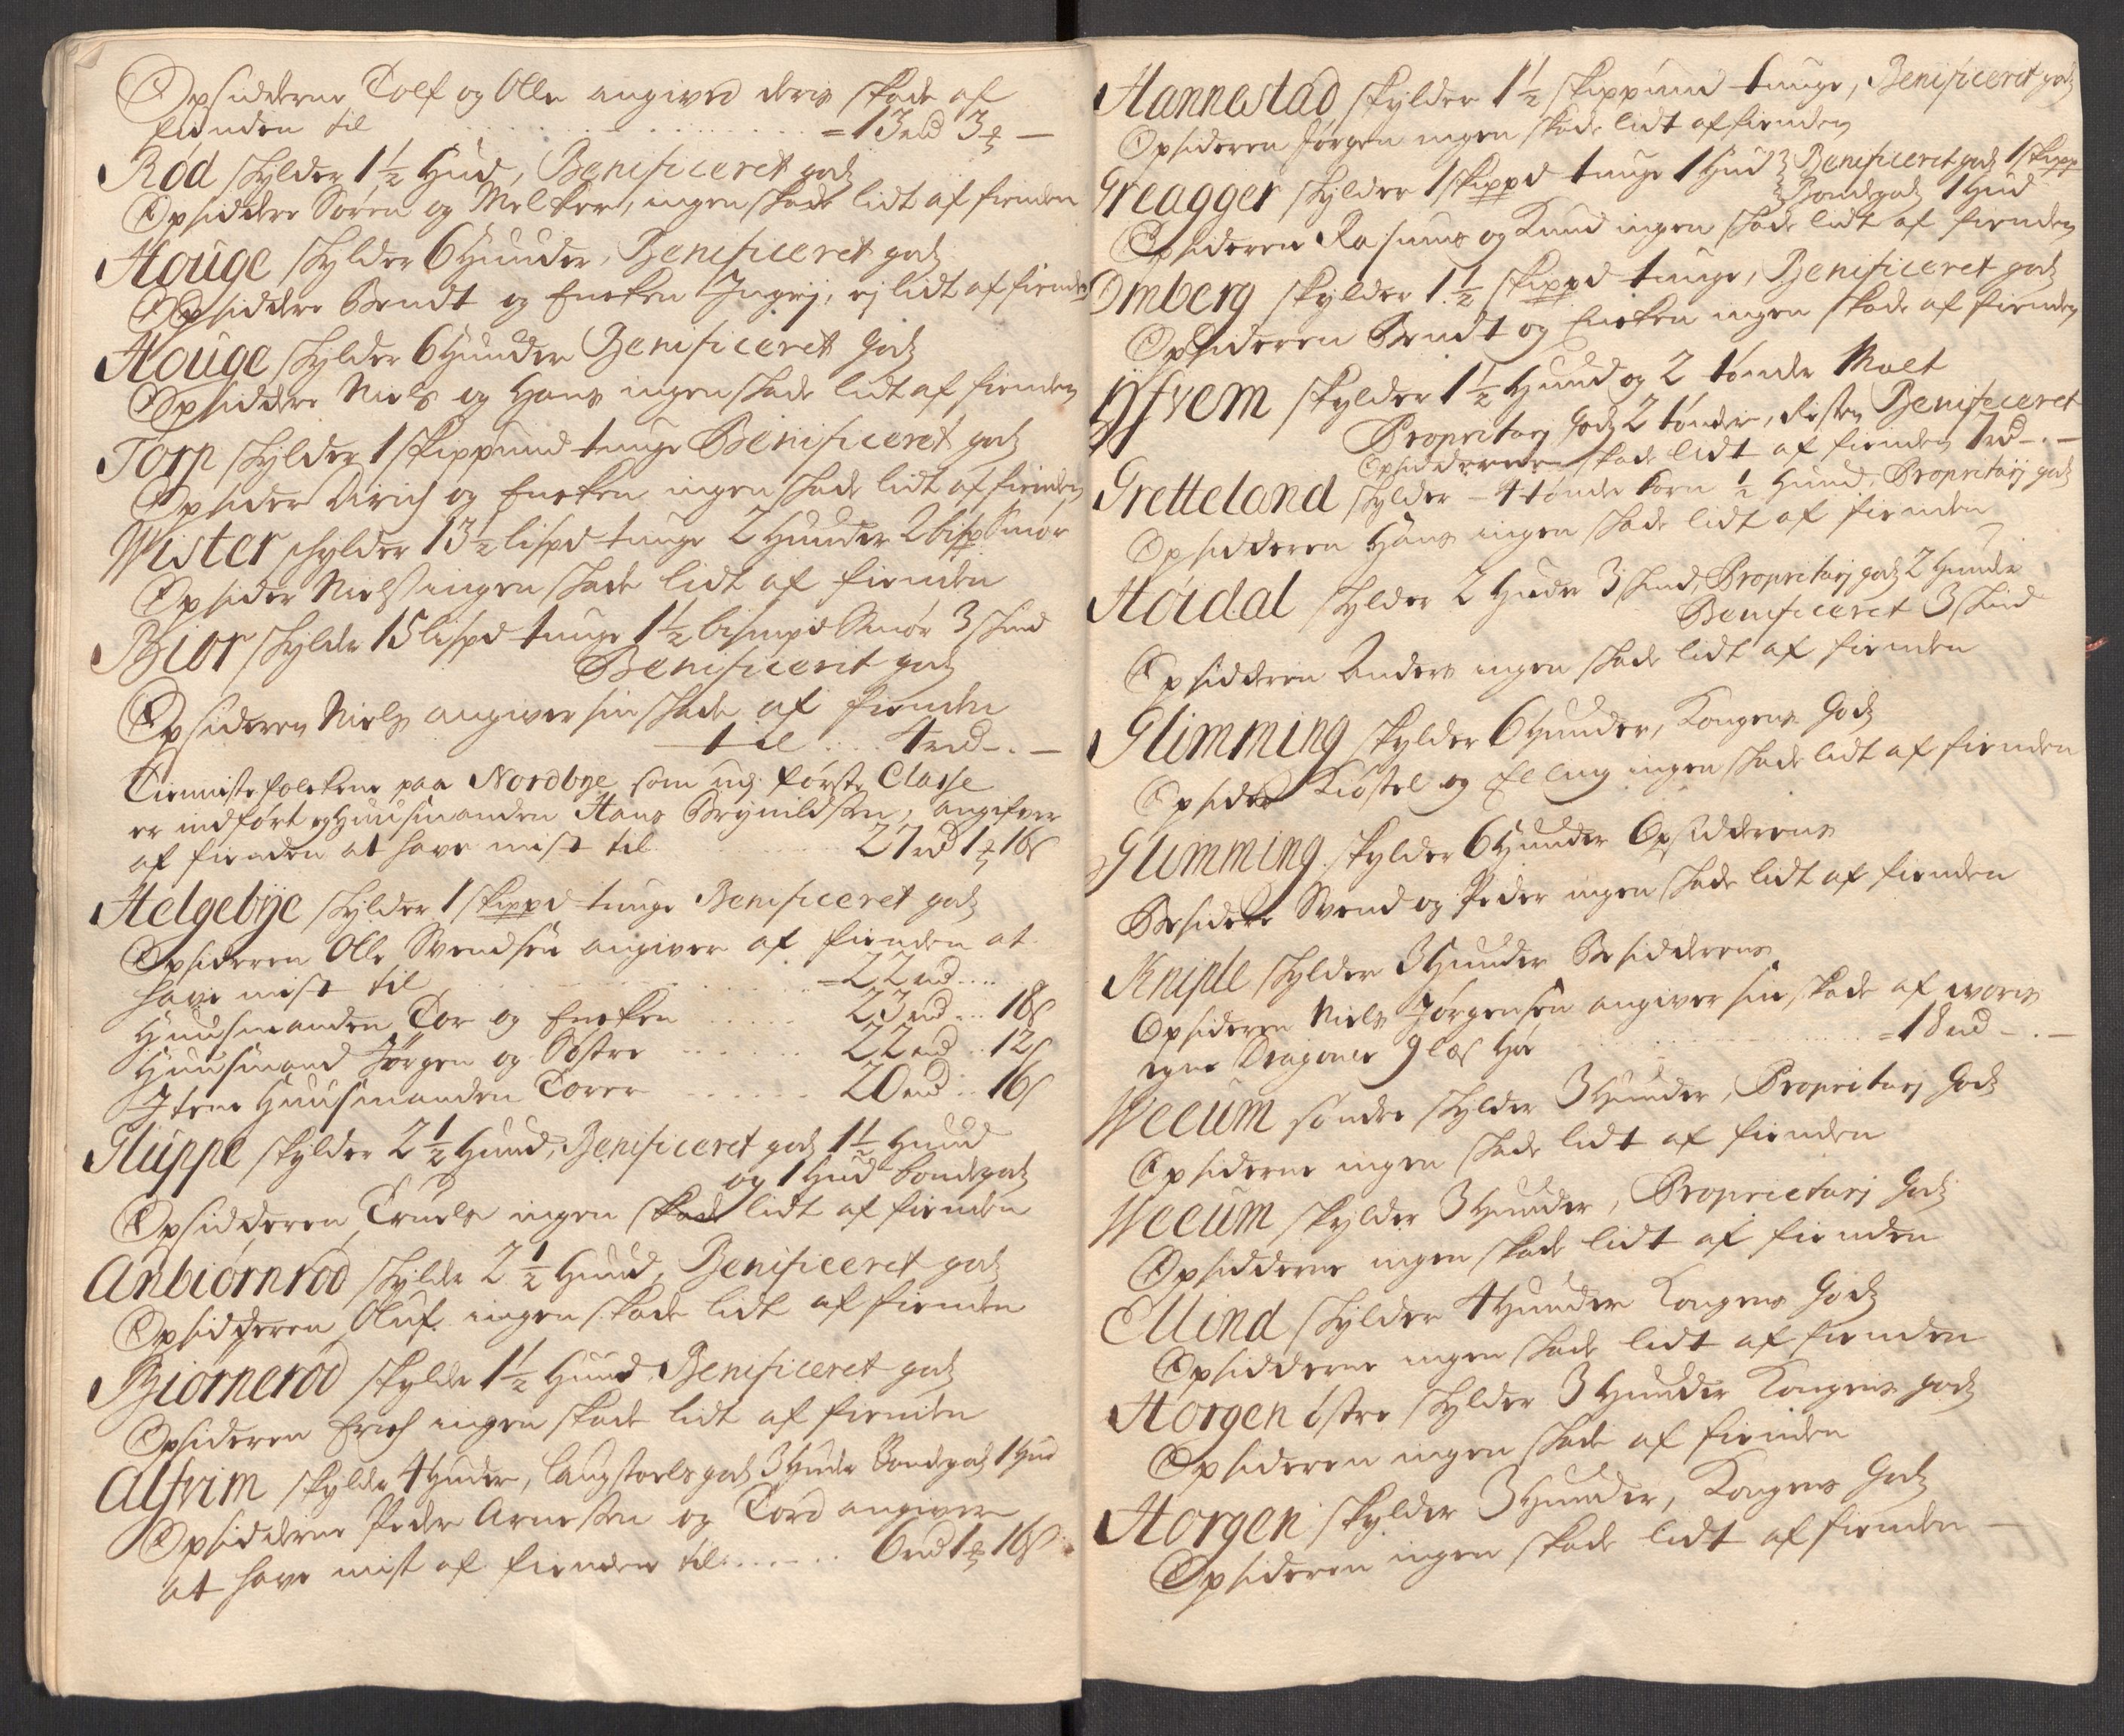 Opsidderne Tolf og Olle angived deris skade af
fienden til = 13 rd 3 ℔ —
Rød skylder 1½ Hud, Benificeret godz
Opsiddere Søren og Melker, ingen skade lidt af fienden
Houge skylder 6 Huuder, Benificeret godz
Opsiddere Bendt og Encken Ingrj, ej lidt af fienden
Houge skylder 6 Huuder Benificeret godz
Opsiddere Niels og Hans ingen skade lidt af fienden
Torp skylder 1 skippund tunge Benificeret godz
Opsider Dirich og Encken ingen skade lidt af fienden
Wister schylder 13½ lispd tunge 2 Huuder 2 bisp Smør
Opsider Niels ingen skade lidt af fienden
Biør skylde 15 lispd tunge 1½ bismpd Smør 3 skind
Benificerit godz
Opsideren Niels angiver sin skade af fienden
til 4 rd - . -
Tiennistefolckene paa Nordbye som udj første Classe
er indført og Huusmanden Hans Brynildsen, angifver
af fienden at have mist til 27 rd 1 ℔ 16 s
Helgebye skylder 1 skippd tunge Benificeret godz
Opsideren Olle Svendsen angiver af fienden at
have mist til = 22 rd ....
Huusmanden Tor og Encken 23 rd .. 18 s
Huusmand Jørgen og Søstre 22 rd .. 12 s
Item Huusmanden Torer 20 rd .. 16 s
Gluppe skylder 2½ Huud, Benificeret godz 1½ Huud
og 1 Hud bondegodz
Opsidderen Truels ingen skade lidt af fienden
Anbiørnrød skylde 2½ Huud, Benificeret godz
Opsidderen Oluf ingen skade lidt af fienden
Biørnerød skylde 1½ Huud, Benificeret godz
Opsideren Erich ingen skade lidt af fienden
Alfvim skylde 4 Huder, Laugstoels godz 3 Hude Bondegodz 1 Hud
Opsidderne Peder Arnesen og Tord angiver
at have mist af fienden til 6 rd 1 ℔ 16 s
Hannestad skylder 1½ skippund tunge, Benificeret godz
Opsideren Jørgen ingen skade lidt af fienden
Greagger skylder 1 skippd tunge 1 Hud Benificeret godz 1 skipp
Bondegodz 1 Hud
Opsideren Rasmus og Knud ingen skade lidt af fienden
Omberg skylder 1½ skippd tunge, Benificeret godz
Opsideren Bendt og Encken ingen skade af fienden
Yfvem skylder 1½ Huud og 2 tønder Malt
Proprietarj godz 2 tønder, Resten Benificeret
Opsidderne skade lidt af fienden 7 rd - . -
Gretteland skylder 4 tønder korn ½ Huud, Proprietarj godz
Opsidderen Hans ingen skade lidt af fienden
Høidal skylder 2 Huder 3 skind, Proprietarj godz 2 Huude
Benificeret 3 skind
Opsidderen Anders ingen skade lidt af fienden
Glimming skylder 6 Huuder, Kongens Godz
Opsider Kiøstel og Elling ingen skade lidt af fienden
Glimming skylder 6 Huuder Opsidderens
Besidere Svend og Peder ingen skade lidt af fienden
Kniple skylder 3 Huuder Besidderens
Opsideren Niels Jørgensen angiver sin skade af woris
egne Dragoner 9 læs Høe = 18 rd - . -
Weeum søndre skylder 3 Huuder, Proprietarj Godz
Opsiderne ingen skade lidt af fienden
Weeum skylder 3 Huuder, Proprietarj Godz
Opsidderne ingen skade lidt af fienden
Ellind skylder 4 Huuder Kongens Godz
Opsidderne ingen skade lidt af fienden
Horgen østre skylder 3 Huuder Kongens godz
Opsideren ingen skade af fienden
Horgen skylder 3 Huuder, Kongens Godz
Opsideren ingen skade lidt af fienden —